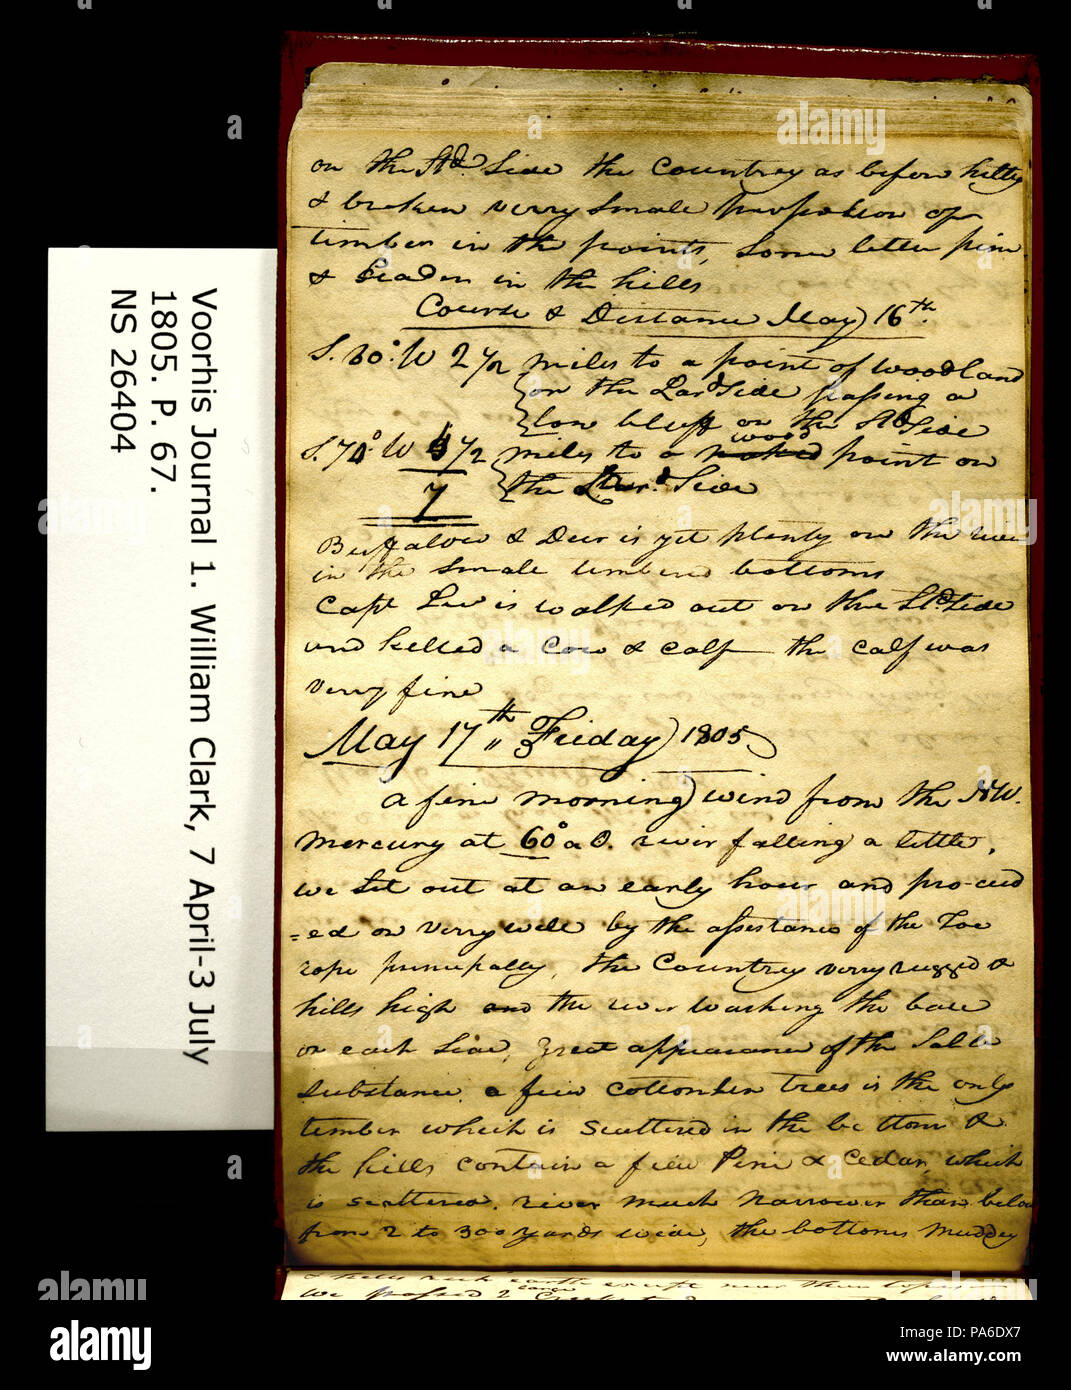 on the Std. Side the Countrey as before hilley
& broken verry Smale proposion of
timber in the points, Some littie pine
& Seader in the hills
Course & Distance May 16th.
S. 30° W 2 1/2 miles to a point of woodland
on the Lard Side passing a
low bluff on the Std Side
S. 70° W 4 1/2 miles to a wood point on
7 the Side
Buffalow & Deer is yet plenty on the river
in the Smale timbered bottoms
Capt Lewis walked out on the Std Side
and killed a Cow & calf the calf was
verry fine
May 17th Friday 1805
a fine morning wind from the NW.
Mercury at 60° a 0. river falling a little,
we Set out at an early hour and pro-ceed
=ed on verry well by the assistance of the Toe
rope principally, the Countrey verry rugged &
hills high and the river washing the base
on each Side, Great appearance of the Salt
Substance. a fiew Cottonwood trees is the only
timber which is Scattered in the bottoms &
the hills contain a fiew Pine & Cedar, which
is scattered. river much narrower than below
from 2 to 300 yards wide, the bottoms muddey
& hills rich earth except near their tops
We passed 2 large Creeks
Voorhis Journal 1. William Clark, 7 April-3 July
1805. P. 67.
NS 26404
alamy
alamy
alamy
alamy
alamy
alamy
a
a
a
a
alamy
Image ID: PA6DX7
www.alamy.com